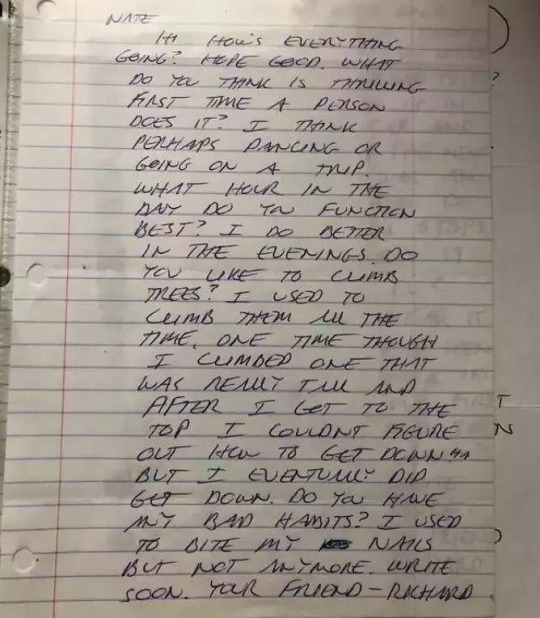 NATE
HI HOW'S EVERYTHING
GOING? HOPE GOOD. WHAT
DO YOU THINK IS THRILLING
FIRST TIME A PERSON
DOES IT? I THINK
PERHAPS DANCING OR
GOING ON A TRIP.
WHAT HOUR IN THE
DAY DO YOU FUNCTION
BEST? I DO BETTER
IN THE EVENINGS. DO
YOU LIKE TO CLIMB
TREES? I USED TO
CLIMB THEM ALL THE
TIME. ONE TIME THOUGH
I CLIMBED ONE THAT
WAS REALLY TALL AND
AFTER I GOT TO THE
TOP I COULDNT FIGURE
OUT HOW TO GET DOWN
BUT I EVENTUALLY DID
GET DOWN. DO YOU HAVE
ANY BAD HABITS? I USED
TO BITE MY NAILS
BUT NOT ANYMORE. WRITE
SOON. YOUR FRIEND - RICHARD